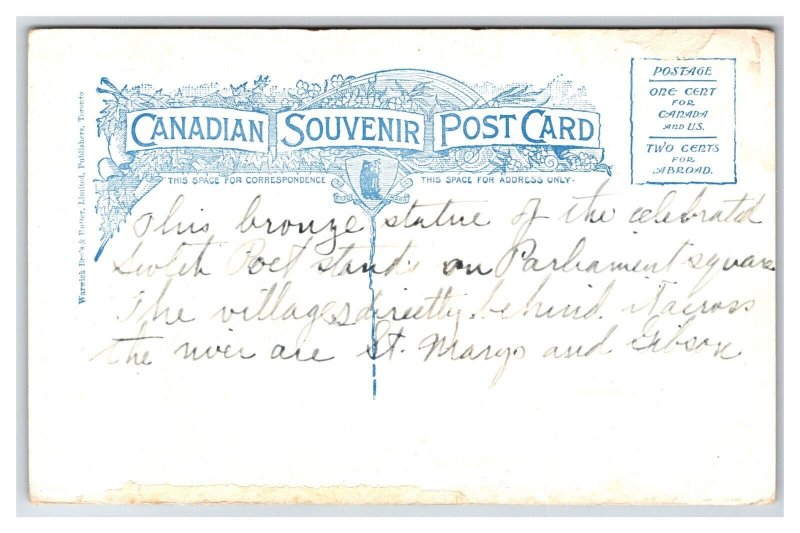 CANADIAN SOUVENIR POST CARD
POSTAGE
ONE CENT
FOR
CANADA
AND U.S.
TWO CENTS
FOR
ABROAD.
THIS SPACE FOR CORRESPONDENCE
THIS SPACE FOR ADDRESS ONLY.
Warwick Bro's & Rutter, Limited, Publishers, Toronto
This bronze statue of the celebrated
Scotch Poet stands on Parliament square
The villages directly behind it across
the river are St. Marys and Gibson